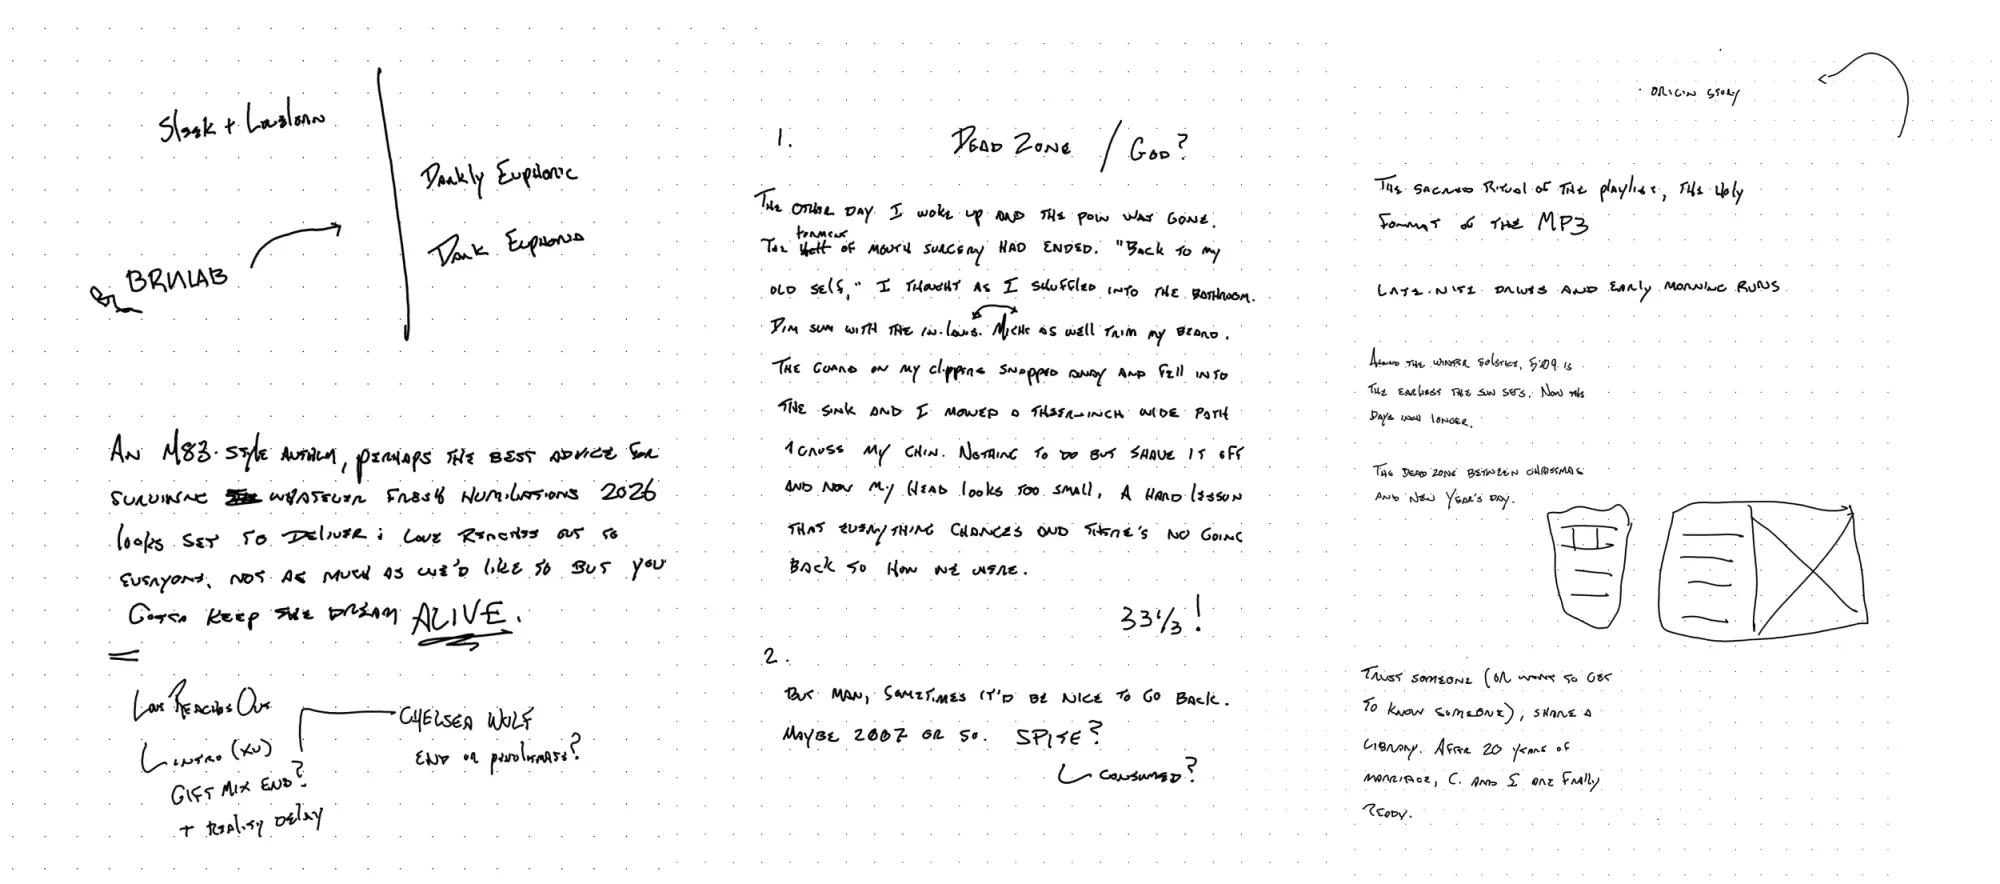 Sleek + Lovelorn
Darkly Euphoric
Dark Euphoria
BRNLAB
AN M83-STYLE ANTHEM, PERHAPS THE BEST ADVICE FOR
SURVIVING WHATEVER FRESH HUMILIATIONS 2026
LOOKS SET TO DELIVER: LOVE REACHES OUT TO
EVERYONE, NOT AS MUCH AS WE'D LIKE TO BUT YOU
GOTTA KEEP THE DREAM ALIVE.
LOVE REACHES OUT
INTRO (XU)
GIFT MIX END?
+ REALITY DELAY
CHELSEA WOLF
END OR PENULTIMATE?
1.
DEAD ZONE / GOD?
THE OTHER DAY I WOKE UP AND THE PAIN WAS GONE.
THE TORMENT OF MOUTH SURGERY HAD ENDED. "BACK TO MY
OLD SELF," I THOUGHT AS I SHUFFLED INTO THE BATHROOM.
DIM SUM WITH THE IN-LAWS. MIGHT AS WELL TRIM MY BEARD.
THE GUARD ON MY CLIPPERS SNAPPED AWAY AND FELL INTO
THE SINK AND I MOWED A THREE-INCH WIDE PATH
ACROSS MY CHIN. NOTHING TO DO BUT SHAVE IT OFF
AND NOW MY HEAD LOOKS TOO SMALL, A HARD LESSON
THAT EVERYTHING CHANGES AND THERE'S NO GOING
BACK TO HOW WE WERE.
33 1/3!
2.
BUT MAN, SOMETIMES IT'D BE NICE TO GO BACK.
MAYBE 2007 OR SO. SPITE?
CONSUMED?
ORIGIN STORY
THE SACRED RITUAL OF THE PLAYLIST, THE HOLY
FORMAT OF THE MP3
LATE-NITE DRIVES AND EARLY MORNING RUNS
AROUND THE WINTER SOLSTICE, 5:09 IS
THE EARLIEST THE SUN SETS. NOW THE
DAYS LONGER.
THE DEAD ZONE BETWEEN CHRISTMAS
AND NEW YEAR'S DAY.
TRUST SOMEONE (OR WANT TO GET
TO KNOW SOMEONE), SHARE A
LIBRARY. AFTER 20 YEARS OF
MARRIAGE, C. AND I ARE FINALLY
READY.